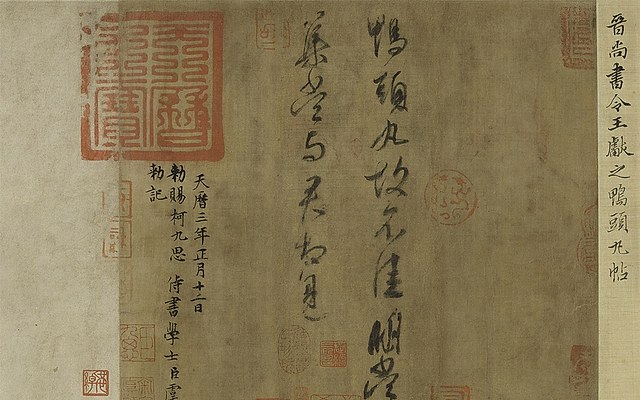 晉尚書令王獻之鴨頭丸帖
鴨頭丸故不佳明當
集當与君相見
天曆三年正月十二日
勑賜柯九思侍書學士臣虞
勑記
天曆之寶